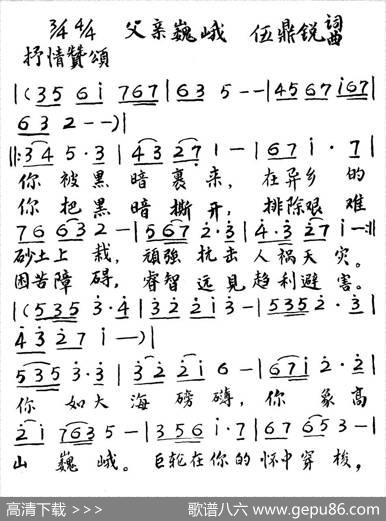 3/4 4/4 父亲巍峨 伍鼎锐 词曲
抒情赞頌
|(35 6i 767|63 5--|4567 i67|
63 2--)|
‖:34 5·3|43 27 1-|67 i·7|
你被黑暗裹来，在异乡的
你把黑暗撕开，排除艰难
76 63 2-|567 2·3|4·3 27 i-:‖
砂土上栽，頑強抗击人祸天灾。
困苦障碍，睿智远見趋利避害。
|(535 3·4|32 2i 3-|535 2·3|
43 27 i-)|
535 3·3|32 2i 6-|67i 2·2|
你如大海磅礴，你象高
2i 763 5-|356 i·7|67 653-|
山巍峨。巨轮在你的怀中穿梭，
高清下载 >>>
歌谱八六 www.gepu86.com